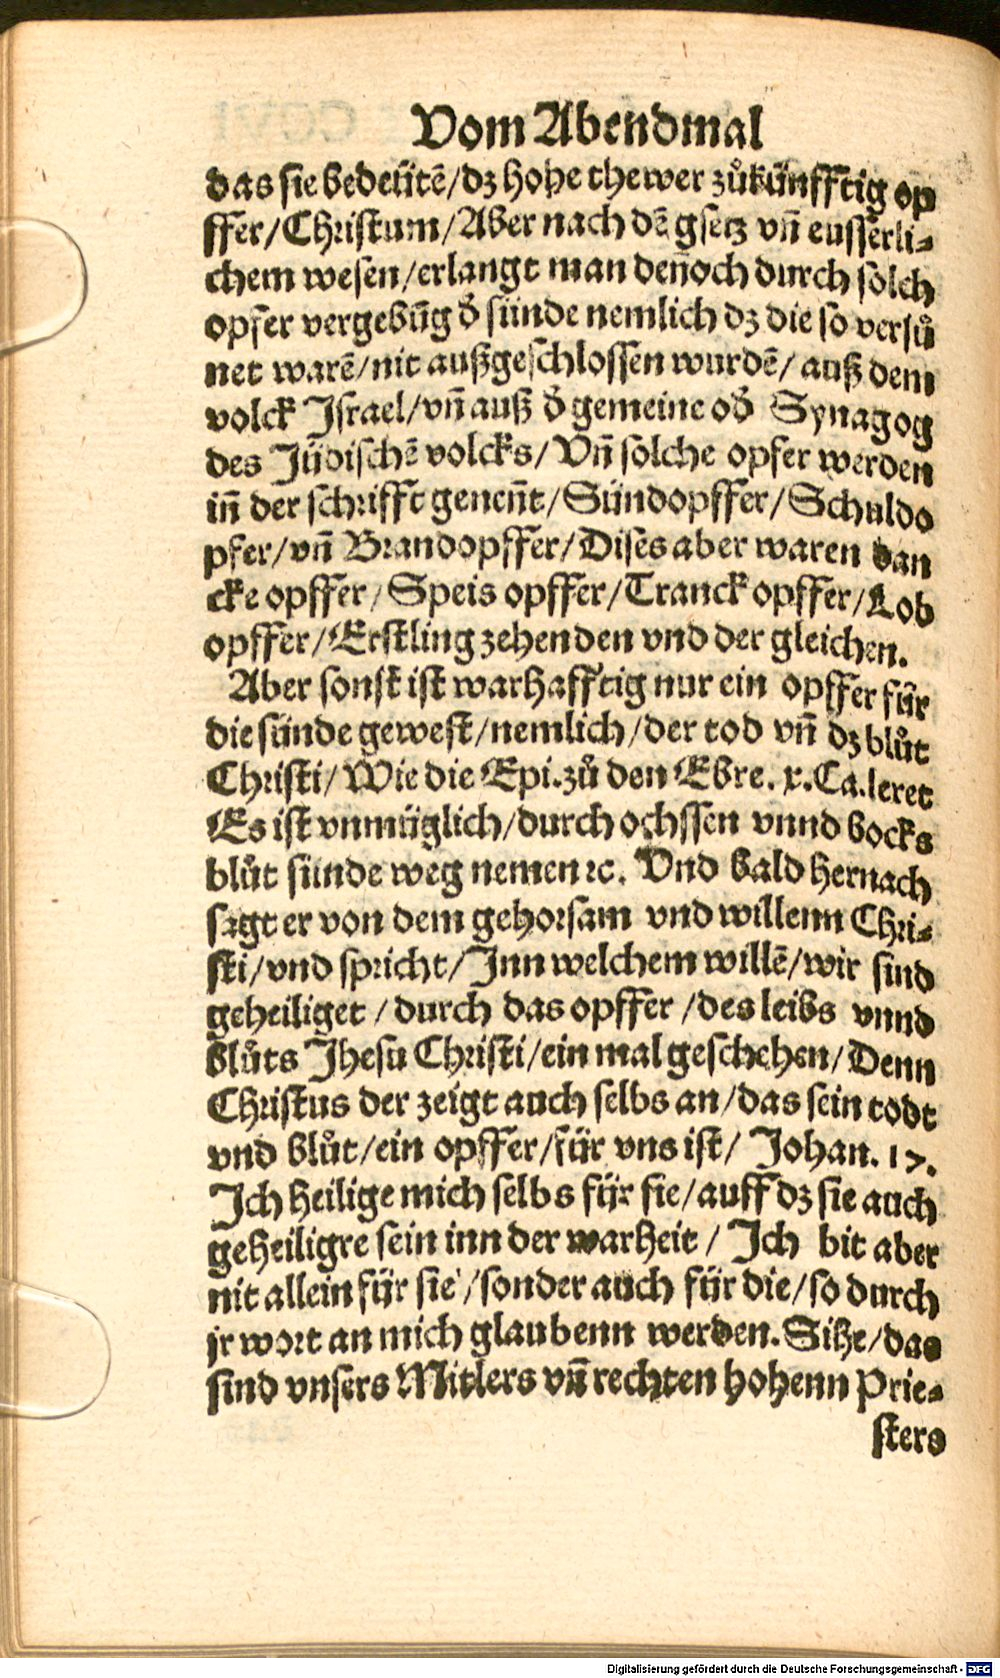 Vom Abendmal
das sie bedeütẽ/dz hohe thewer zůkünfftig op
ffer/Christum/Aber nach dẽ gsetz vñ eusserli⸗
chem wesen/erlangt man deñoch durch solch
opfer vergebũg d̕ sünde nemlich dz die so versů
net warẽ/nit außgeschlossen wurdẽ/auß dem
volck Israel/vñ auß d̕ gemeine od̕ Synagog
des Jüdischẽ volcks/Vñ solche opfer werden
iñ der schrifft geneñt/Sündopffer/Schuldo
pfer/vñ Brandopffer/Dises aber waren dan
cke opffer/Speis opffer/Tranck opffer/Lob
opffer/Erstling zehenden vnd der gleichen.
Aber sonst ist warhafftig nur ein opffer für
die sünde gewest/nemlich/der tod vñ dz blůt
Christi/Wie die Epi.zů den Ebre. x.Ca.leret
Es ist vnmüglich/durch ochssen vnnd bocks
blůt sünde weg nemen ꝛc. Vnd bald hernach
sagt er von dem gehorsam vnd willenn Chri⸗
sti/vnd spricht/Inn welchem willẽ/wir sind
geheiliget/durch das opffer/des leibs vnnd
blůts Jhesu Christi/ein mal geschehen/Denn
Christus der zeigt auch selbs an/das sein todt
vnd blůt/ein opffer/für vns ist/Johan. 17.
Ich heilige mich selbs für sie/auff dz sie auch
geheiligre sein inn der warheit/Ich bit aber
nit allein für sie/sonder auch für die/so durch
jr wort an mich glaubenn werden. Sihe/das
sind vnsers Mitlers vñ rechten hohenn Prie⸗
sters
Digitalisierung gefördert durch die Deutsche Forschungsgemeinschaft - DFG